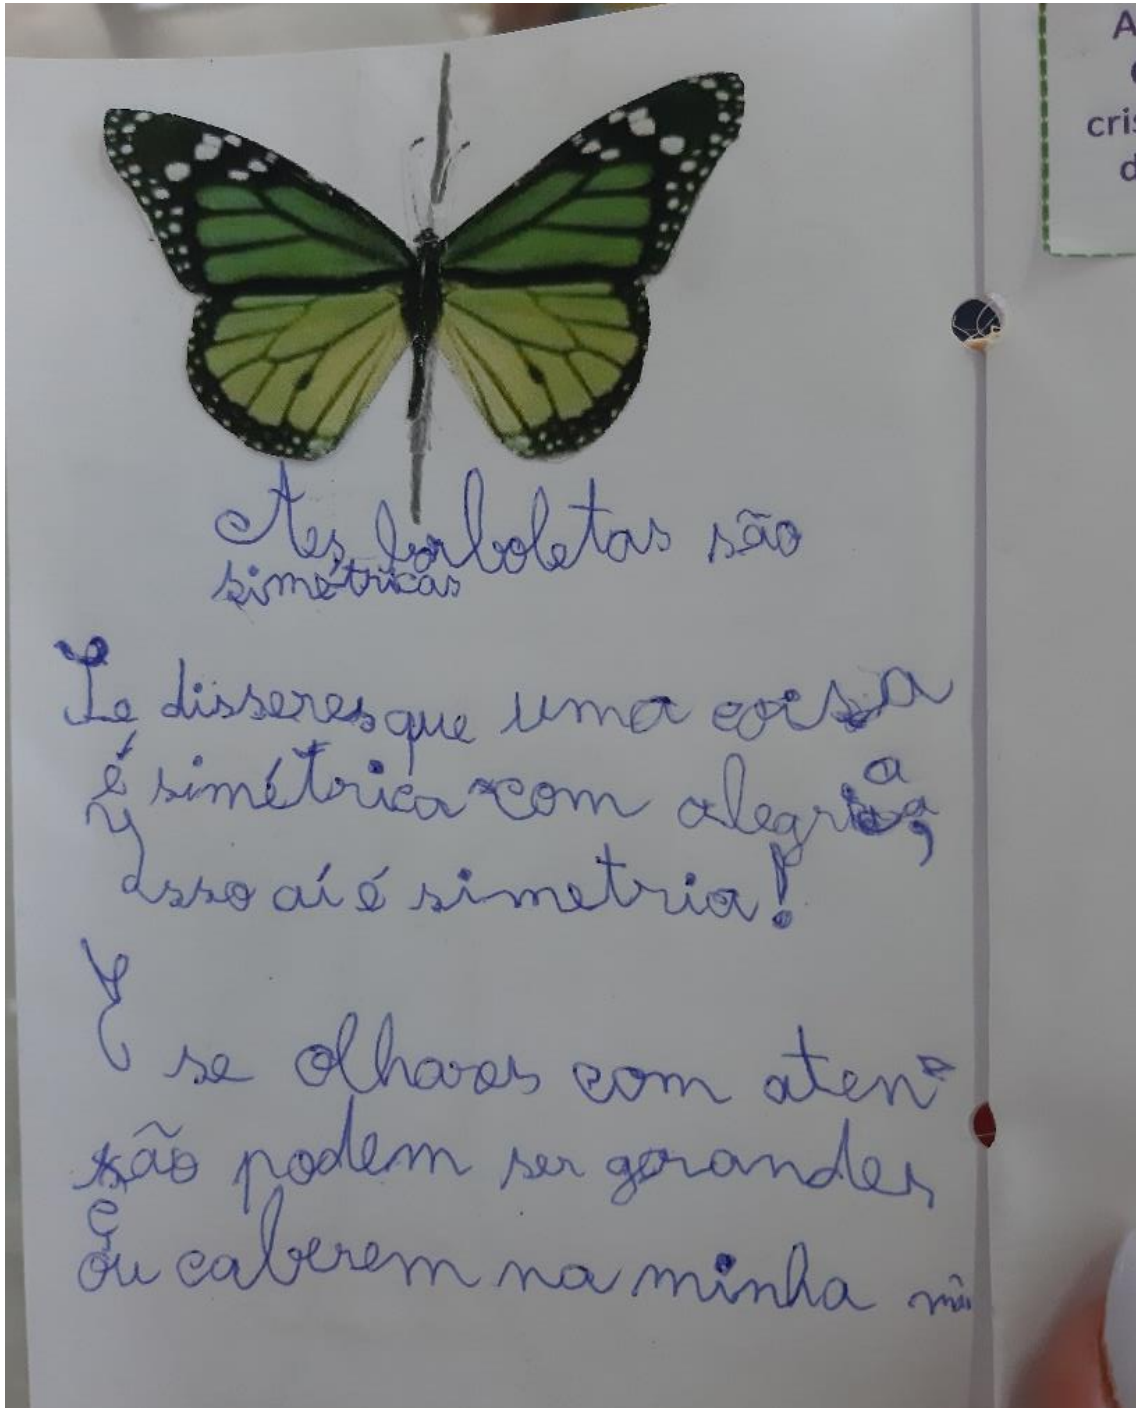 As borboletas são
simétricas
Se disseres que uma coisa
é simétrica com alegria,
Isso aí é simetria!
E se olhares com aten-
são podem ser grandes
ç
Ou caberem na minha mão
A
cris
d